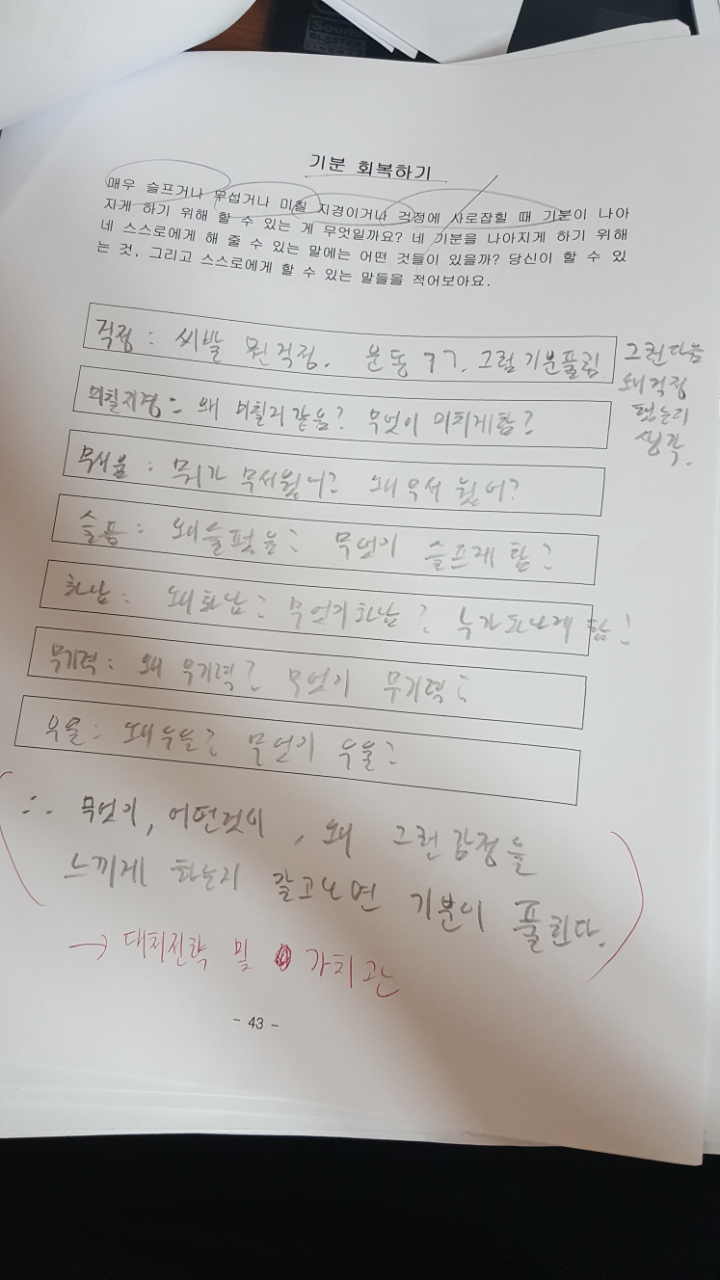 Sound
BLASTER
기분 회복하기
매우 슬프거나 무섭거나 미칠 지경이거나 걱정에 사로잡힐 때 기분이 나아
지게 하기 위해 할 수 있는 게 무엇일까요? 네 기분을 나아지게 하기 위해
네 스스로에게 해 줄 수 있는 말에는 어떤 것들이 있을까? 당신이 할 수 있
는 것, 그리고 스스로에게 할 수 있는 말들을 적어보아요.
걱정 : 씨발 뭔걱정. 운동 ㄱㄱ. 그럼 기분풀림
그런다음
왜걱정
했는지
생각.
미칠지경 : 왜 미칠거같음? 무엇이 미치게함?
무서울 : 뭐가 무서웠어? 왜 무서웠어?
슬픔 : 왜슬펐음? 무엇이 슬프게 함?
화남 : 왜화남? 무엇이화남? 누가 화나게 함?
무기력 : 왜 무기력? 무엇이 무기력?
우울 : 왜우울? 무엇이 우울?
∴ 무엇이, 어떤것이, 왜 그런감정을
느끼게 하는지 갈고나면 기분이 풀린다.
→ 대처전략 및 가치관
- 43 -